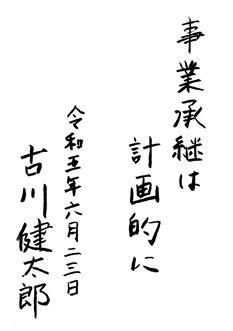 事業承継は
計画的に
令和五年六月二三日
古川健太郎